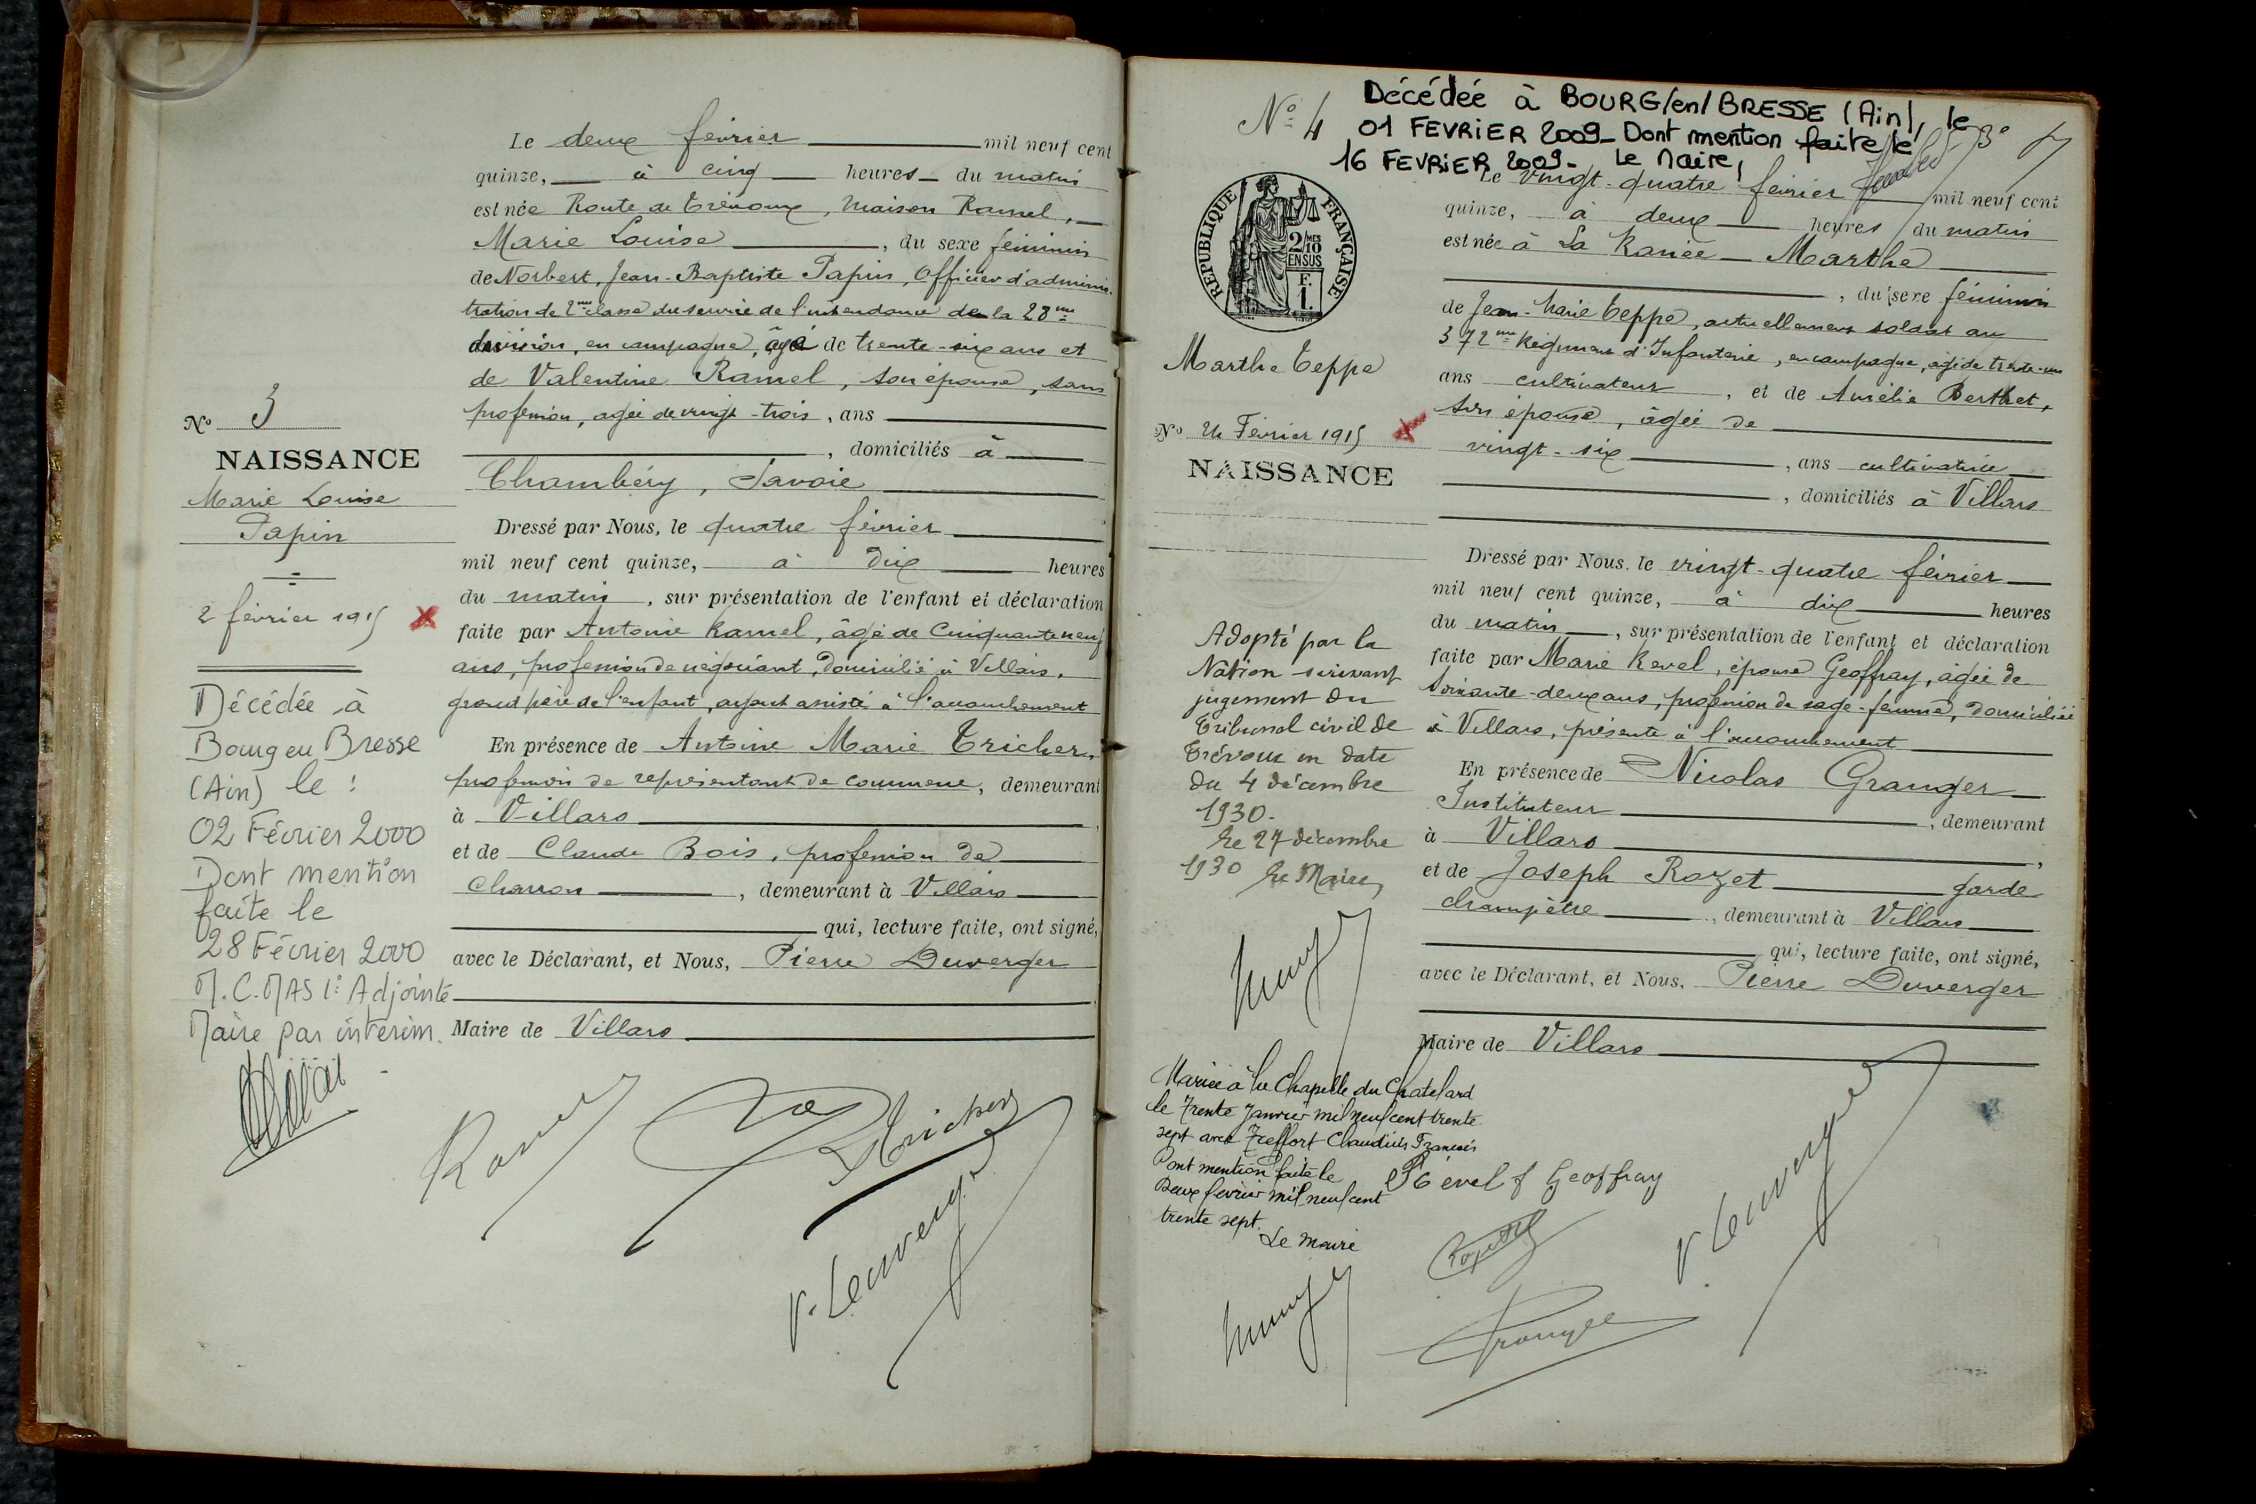 Le deux février mil neuf cent
quinze, à cinq heures du matin
est née Route de Trévoux, Maison Ramel,
Marie Louise, du sexe féminin
de Norbert, Jean-Baptiste Papin, Officier d'adminis-
tration de 2me classe du service de l'intendance de la 28me
division, en campagne, âgé de trente-six ans et
de Valentine Ramel, son épouse, sans
profession, agée de vingt-trois, ans
, domiciliés à
Chambéry, Savoie
No 3
NAISSANCE
Marie Louise
Papin
2 février 1915
Dressé par Nous, le quatre février
mil neuf cent quinze, à dix heures
du matin, sur présentation de l'enfant et déclaration
faite par Antoine Ramel, âgé de Cinquante neuf
ans, profession de négociant, domicilié à Villars,
grand père de l'enfant, ayant assisté à l'accouchement
En présence de Antoine Marie Tricher,
profession de représentant de commerce, demeurant
à Villars
et de Claude Bois, profession de
Charron, demeurant à Villars
qui, lecture faite, ont signé,
avec le Déclarant, et Nous, Pierre Duverger
Maire de Villars
Décédée à
Bourg en Bresse
(Ain) le :
02 Février 2000
Dont mention
faite le
28 Février 2000
M.C. MAS 1è Adjointe
Maire par intérim.
Ramel
Bois
Tricher
P. Duverger
No 4
Décédée à BOURG/en/BRESSE (Ain), le
01 FEVRIER 2009_ Dont mention faite le
16 FEVRIER 2009_ Le Maire,
Le vingt-quatre février mil neuf cent
quinze, à deux heures du matin
est née à La Ranée Marthe
, du sexe féminin
de Jean-Marie Teppe, actuellement soldat au
372me Régiment d'Infanterie, en campagne, agé de trente-un
ans cultivateur, et de Amélie Berthet,
son épouse, âgée de
vingt-six, ans cultivatrice
, domiciliés à Villars
REPUBLIQUE FRANÇAISE
2/10 MES
EN SUS
F.
1.
Marthe Teppe
No 24 Février 1915
NAISSANCE
Dressé par Nous, le vingt-quatre février
mil neuf cent quinze, à dix heures
du matin, sur présentation de l'enfant et déclaration
faite par Marie Revel, épouse Geoffray, âgée de
soixante-deux ans, profession de sage-femme, domiciliée
à Villars, présente à l'accouchement
En présence de Nicolas Granger
Instituteur, demeurant
à Villars,
et de Joseph Rozet garde
champêtre, demeurant à Villars
qui, lecture faite, ont signé,
avec le Déclarant, et Nous, Pierre Duverger
Maire de Villars
Adopté par la
Nation suivant
jugement du
Tribunal civil de
Trévoux en date
du 4 décembre
1930.
Le 27 décembre
1930 Le Maire,
Mariée à la Chapelle du Chatelard
le Trente Janvier mil neuf cent trente
sept avec Treffort Claudius François
Dont mention faite le
Deux février mil neuf cent
trente sept.
Le Maire
Revel f Geoffray
Rozet
Granger
P. Duverger